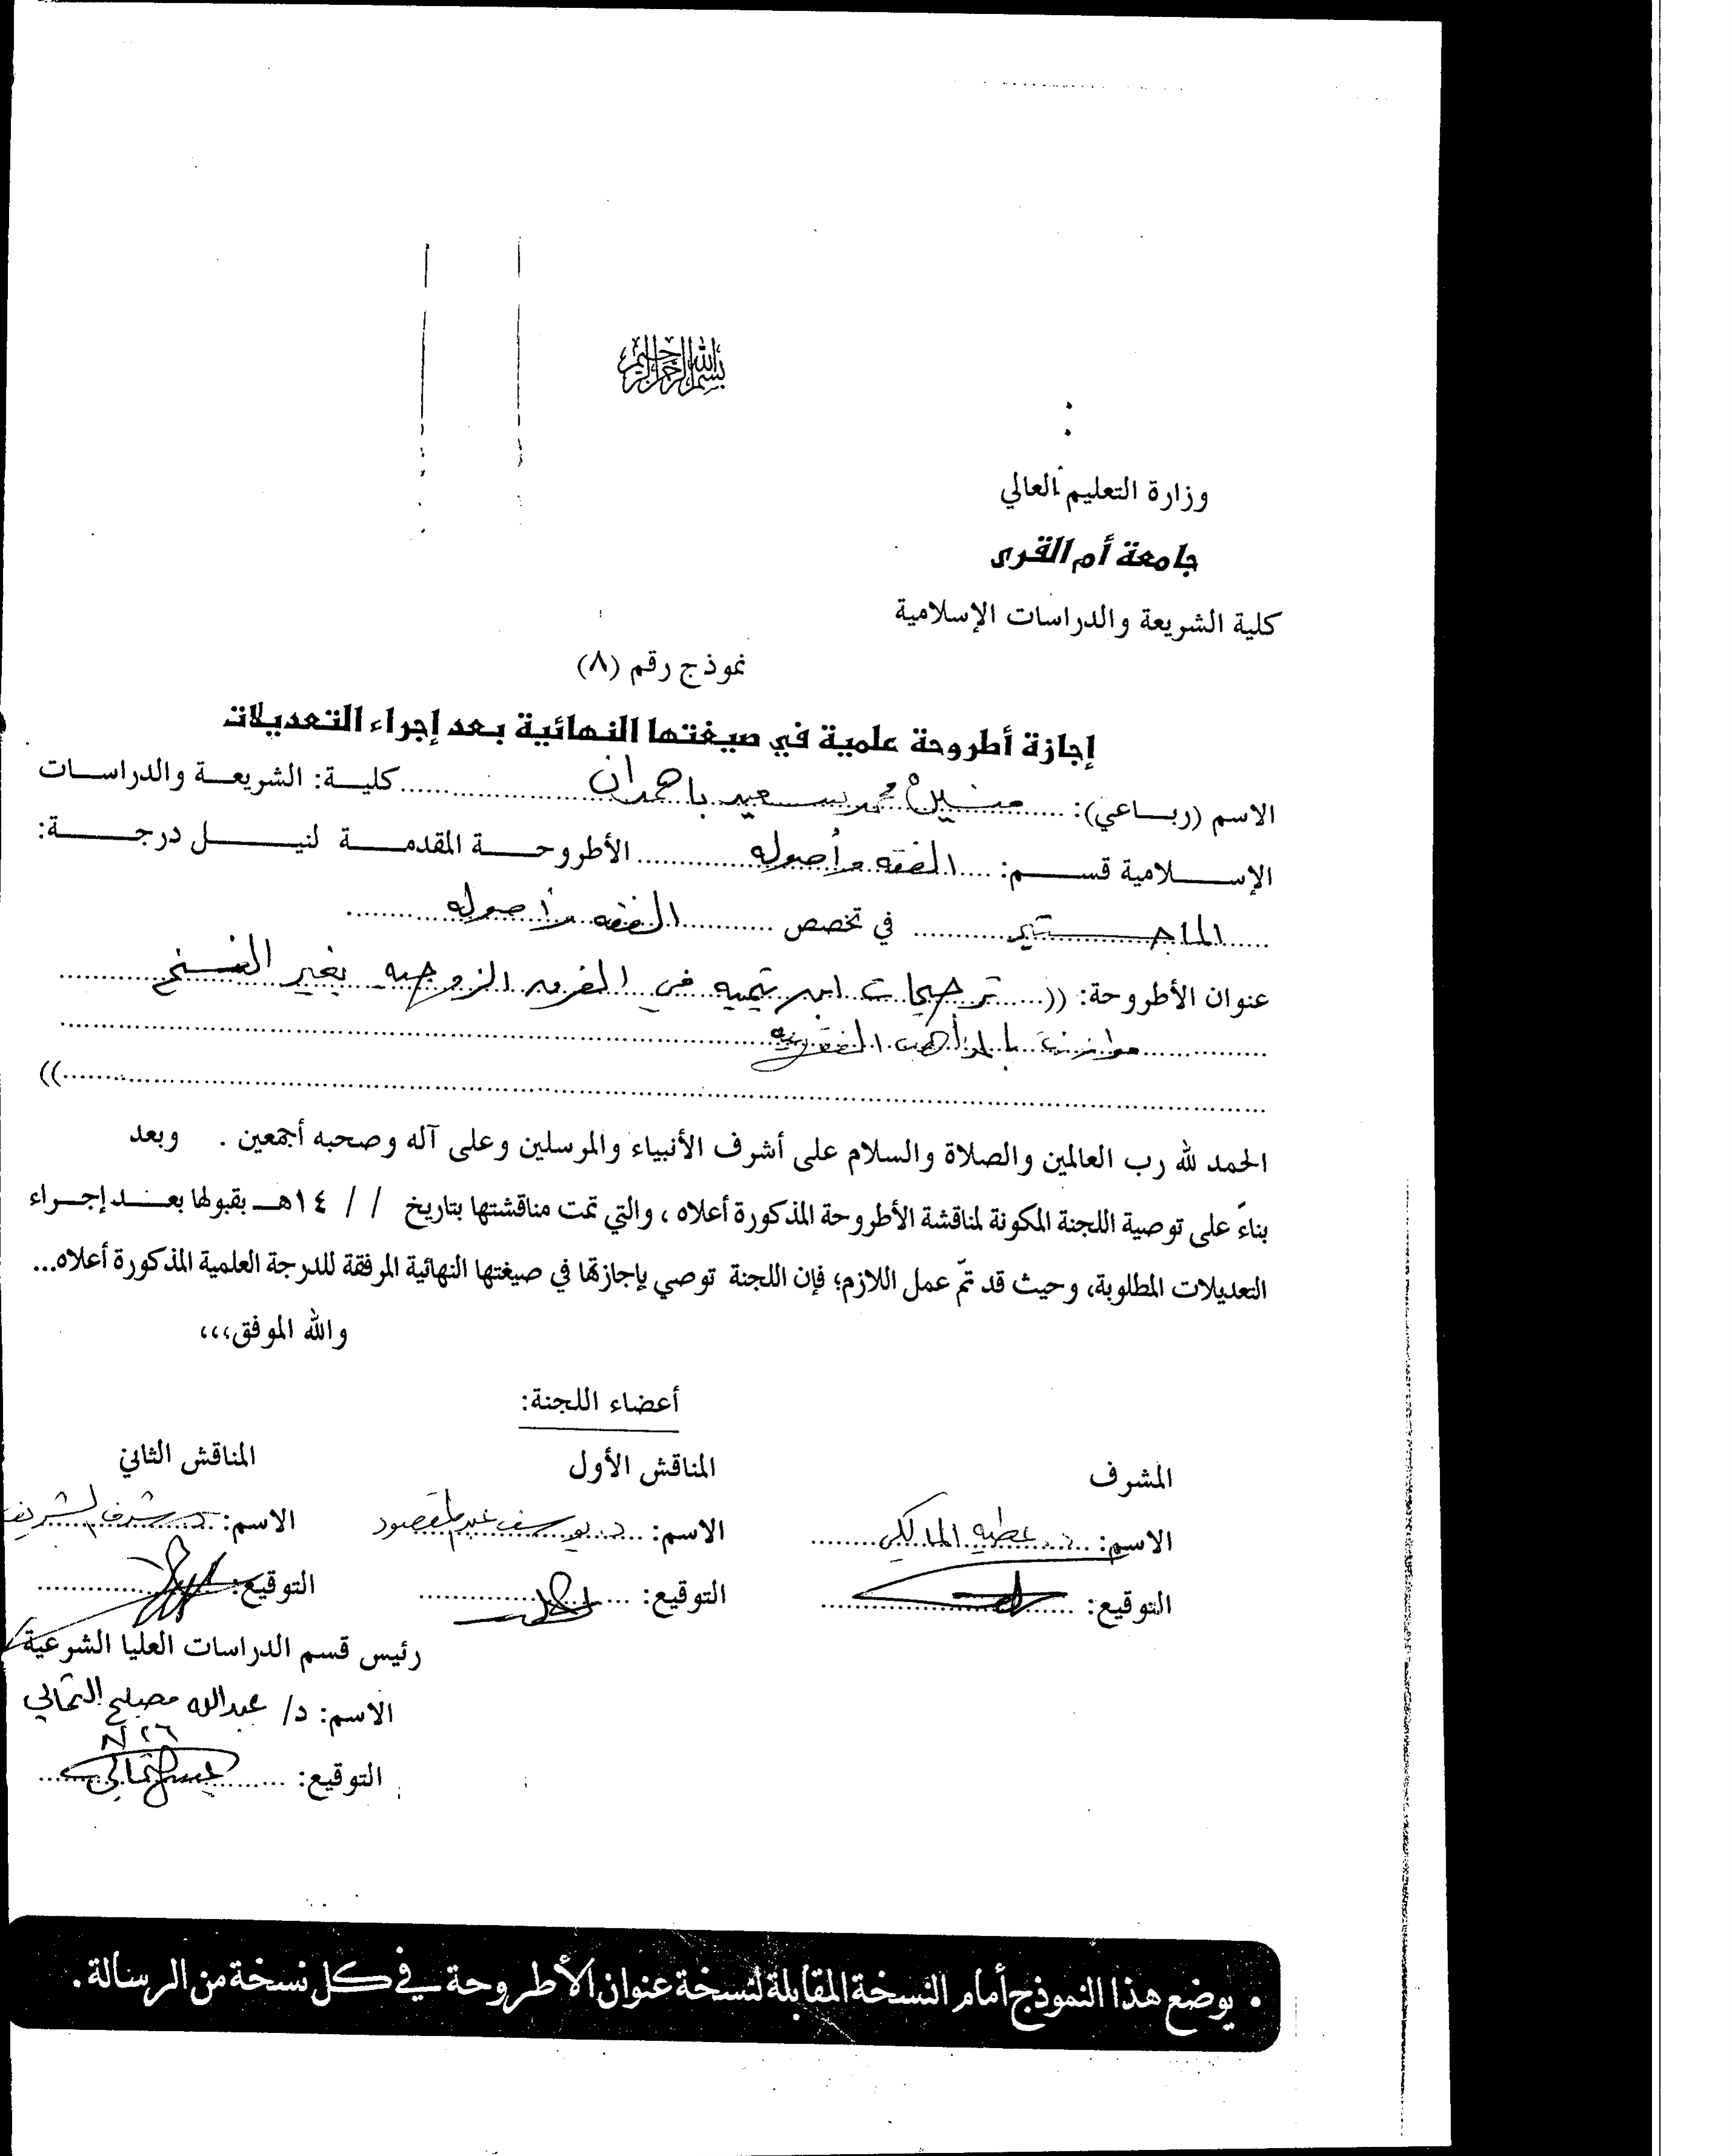 بسم الله الرحمن الرحيم
وزارة التعليم العالي
جامعة أم القرى
كلية الشريعة والدراسات الإسلامية
نموذج رقم (٨)
إجازة أطروحة علمية في صيغتها النهائية بعد إجراء التعديلات
الاسم (رباعي): ...... محمد سعيد باحمدان ...... كلية: الشريعة والدراسات
الإسلامية قسم: .... الفقه وأصوله ...... الأطروحة المقدمة لنيل درجة:
...... الماجستير ...... في تخصص ...... الفقه وأصوله ......
عنوان الأطروحة: ((...... ترجيحات ابن تيميه في الفرقه الزوجيه بغير الفسخ ......
...... موازنة بالمذاهب الفقهية ......
......))
الحمد لله رب العالمين والصلاة والسلام على أشرف الأنبياء والمرسلين وعلى آله وصحبه أجمعين . وبعد
بناءً على توصية اللجنة المكونة لمناقشة الأطروحة المذكورة أعلاه ، والتي تمت مناقشتها بتاريخ / / ١٤هـ بقبولها بعد إجراء
التعديلات المطلوبة، وحيث قد تمّ عمل اللازم؛ فإن اللجنة توصي بإجازتها في صيغتها النهائية المرفقة للدرجة العلمية المذكورة أعلاه...
والله الموفق،،،
أعضاء اللجنة:
المشرف المناقش الأول المناقش الثاني
الاسم: د. عطيه المالكي الاسم: د. يوسف عبد المقصود الاسم: د. شرف الشريف
التوقيع: ...... التوقيع: ...... التوقيع: ......
رئيس قسم الدراسات العليا الشرعية
الاسم: د/ عبدالله مصلح الثمالي
التوقيع: ......
• يوضع هذا النموذج أمام النسخة المقابلة لنسخة عنوان الأطروحة في كل نسخة من الرسالة .